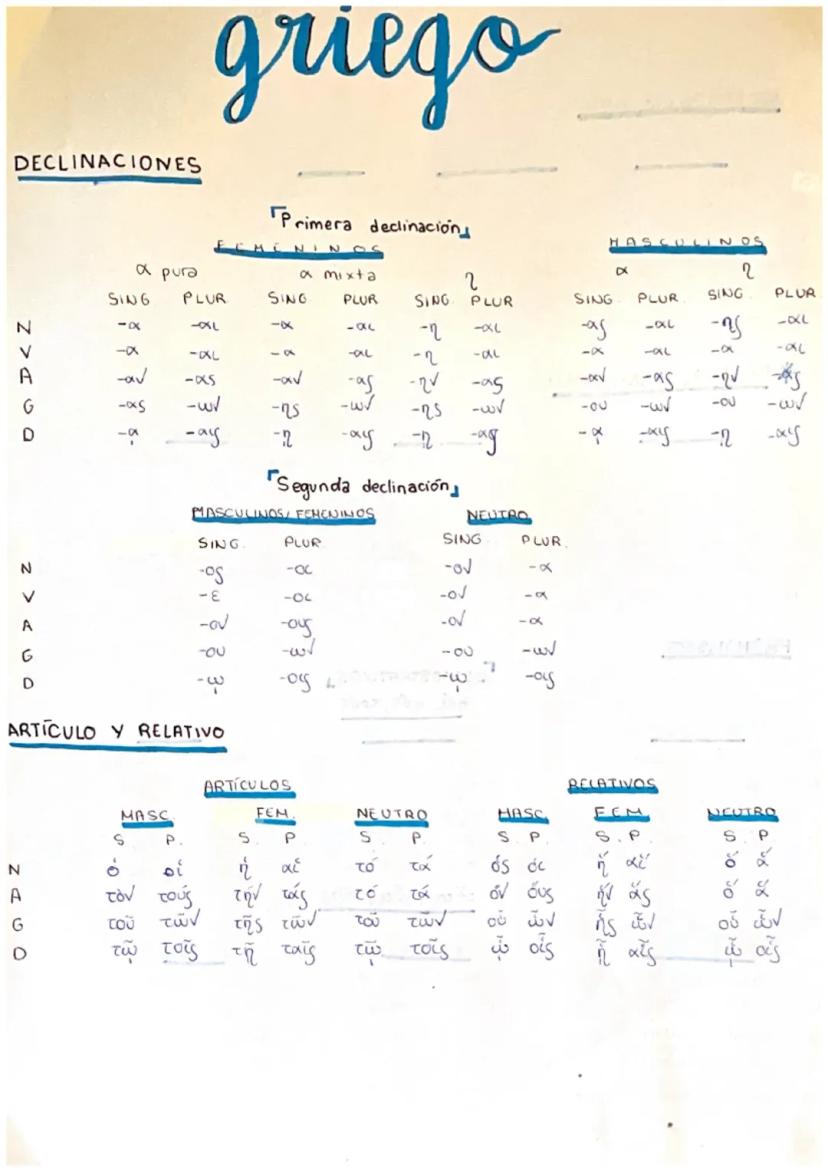 griego
DECLINACIONES
Primera declinación
FEMENINOS MASCULINOS
α pura α mixta η α η
SING PLUR SING PLUR SING. PLUR SING. PLUR. SING. PLUR
N -α -αι -α -αι -η -αι -ας -αι -ης -αι
V -α -αι -α -αι -η -αι -α -αι -α -αι
A -αν -ας -αν -ας -ην -ας -αν -ας -ην -ας
G -ας -ων -ης -ων -ης -ων -ου -ων -ου -ων
D -ᾳ -αις -ῃ -αις -ῃ -αις -ᾳ -αις -ῃ -αις
Segunda declinación
MASCULINOS/FEMENINOS NEUTRO
SING. PLUR. SING. PLUR.
N -ος -οι -ον -α
V -ε -οι -ον -α
A -ον -ους -ον -α
G -ου -ων -ου -ων
D -ῳ -οις -ῳ -οις
ARTÍCULO Y RELATIVO
ARTÍCULOS RELATIVOS
MASC. FEM. NEUTRO MASC. FEM. NEUTRO
S P. S. P. S. P. S. P. S. P. S. P
N ὁ οἱ ἡ αἱ τό τά ὅς οἵ ἥ αἵ ὅ ἅ
A τὸν τούς τήν τάς τό τά ὅν οὕς ἥν ἅς ὅ ἅ
G τοῦ τῶν τῆς τῶν τοῦ τῶν οὗ ὧν ἧς ὧν οὗ ὧν
D τῷ τοῖς τῇ ταῖς τῷ τοῖς ᾧ οἷς ᾗ αἷς ᾧ οἷς